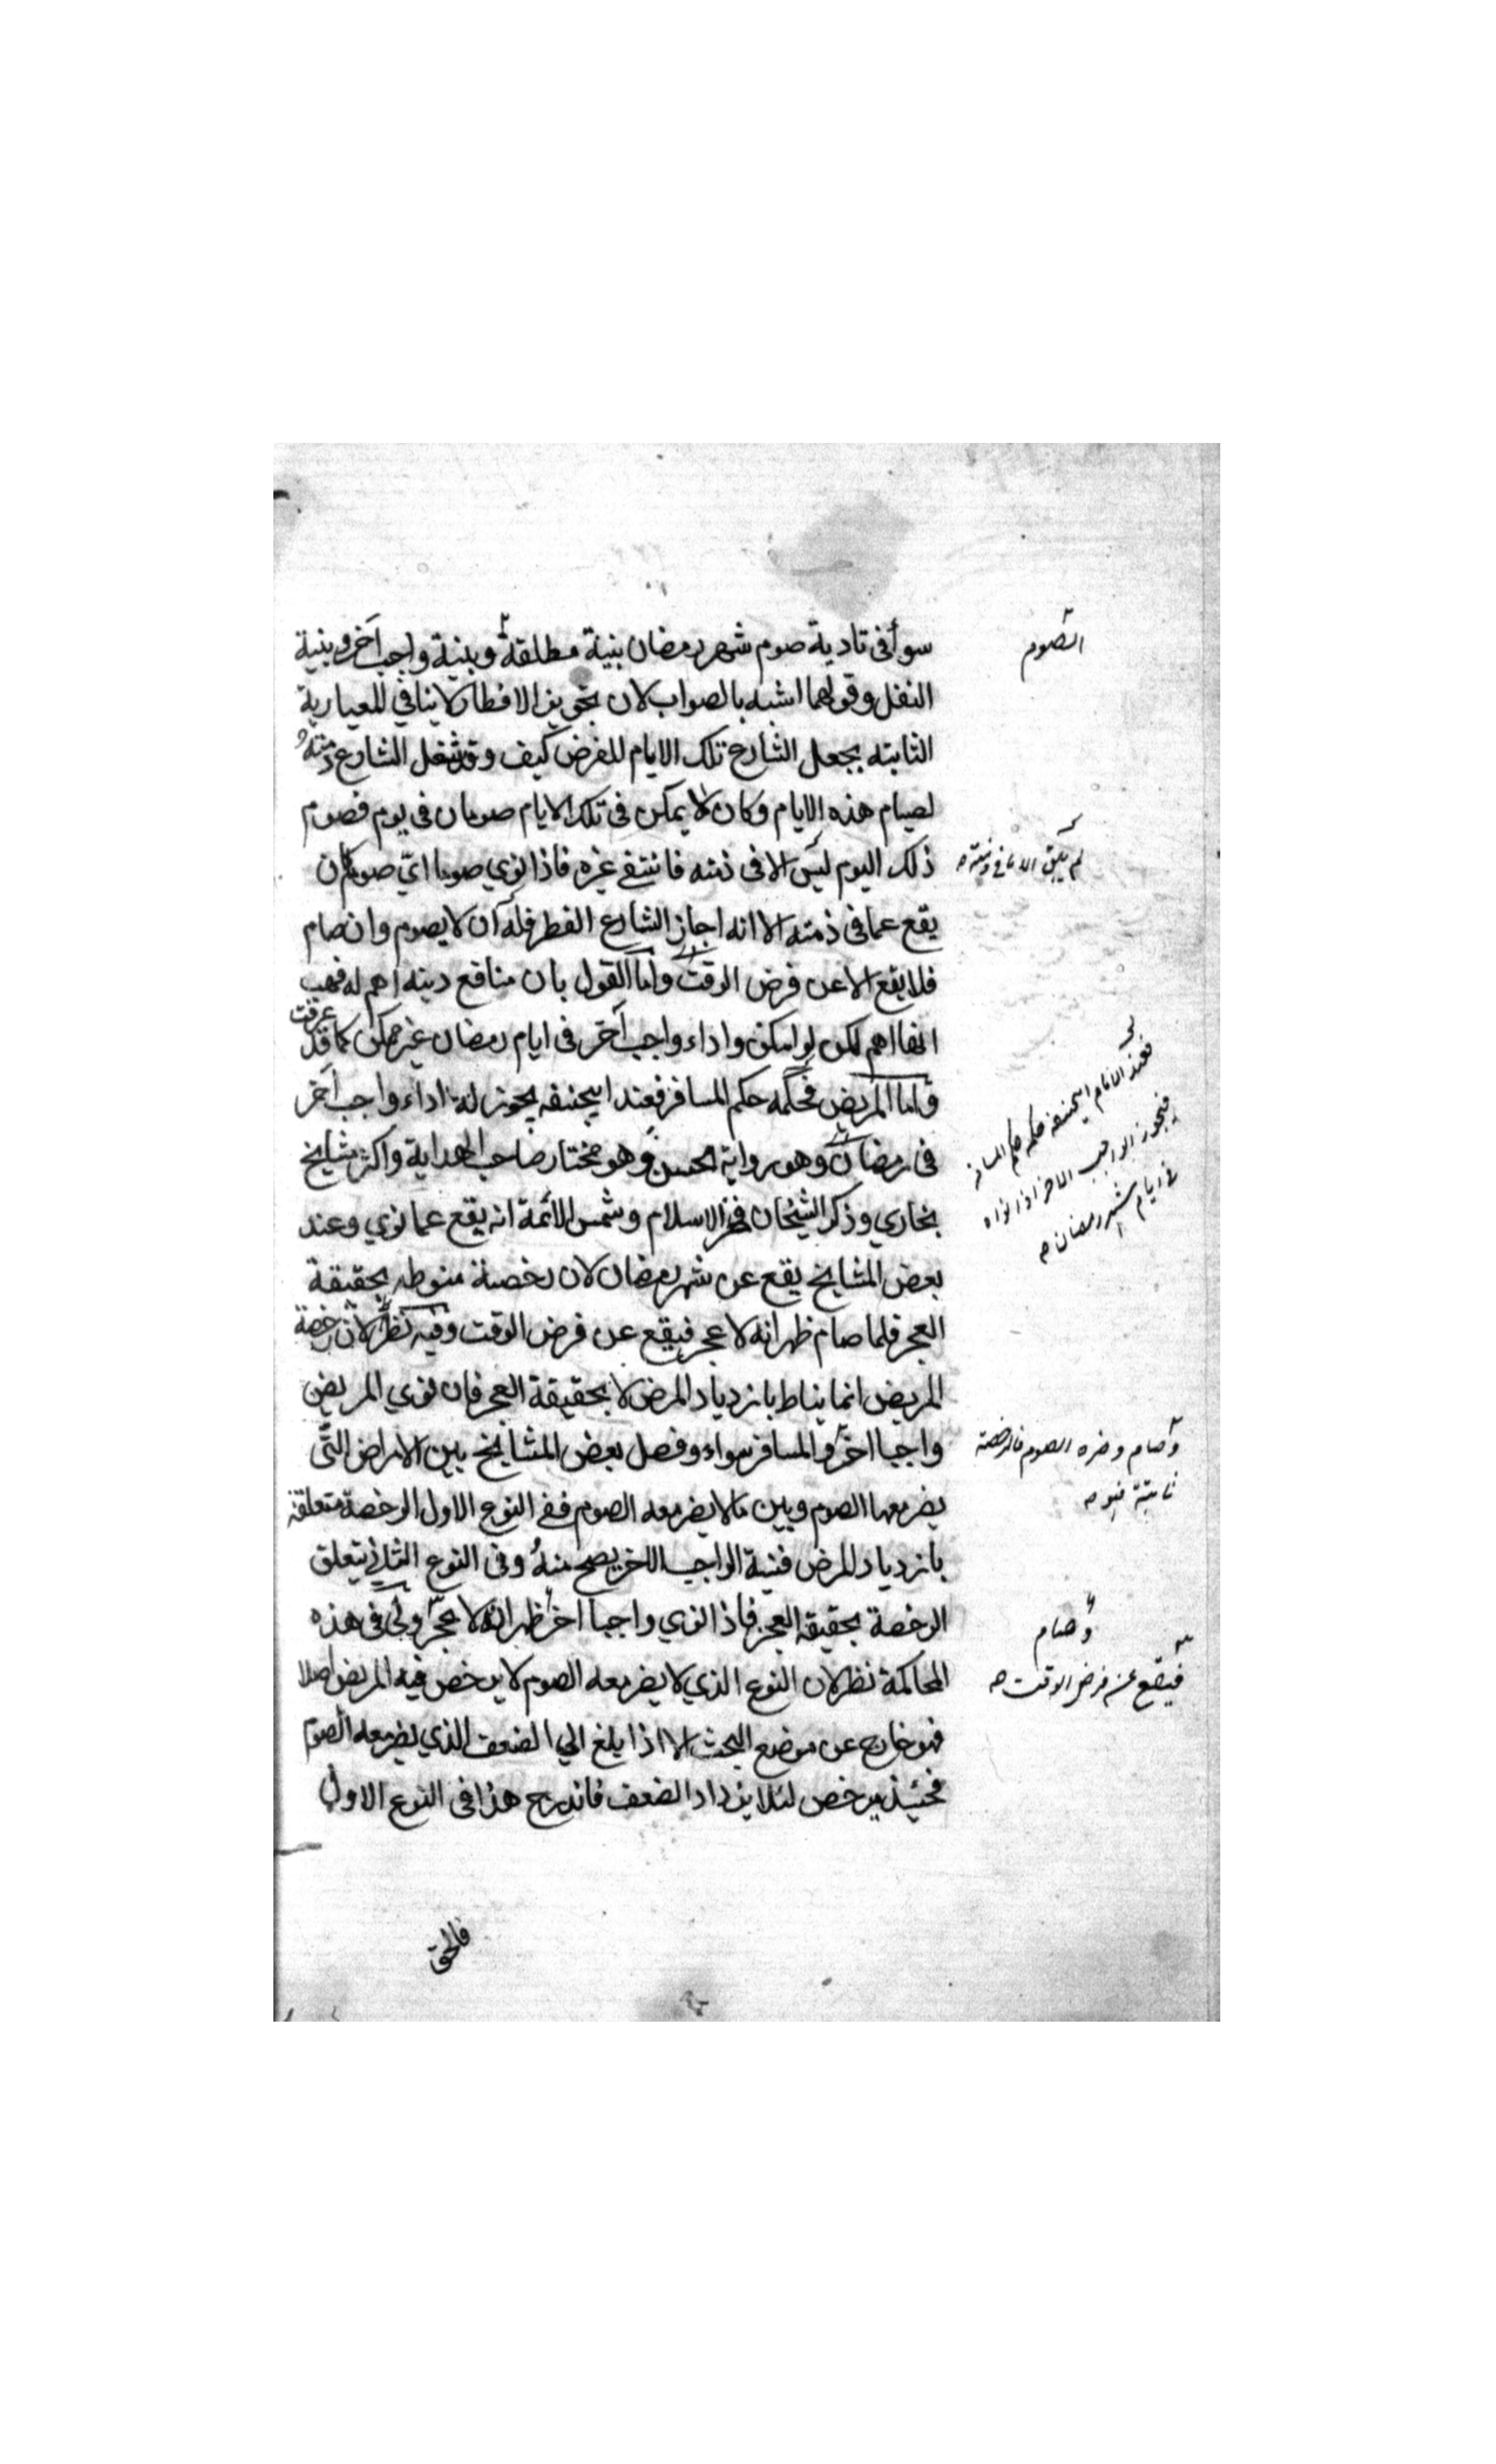 سوأ فى تادية صوم شهر رمضان بنية مطلقة وبنية واجب آخر وبنية
النفل وقولهما اشبه بالصواب لان تجويز الافطار لا ينافي للمعيارية
الثابته بجعل الشارع تلك الايام للفرض كيف وقد شغل الشارع ذمته
لصيام هذه الايام وكان لا يمكن فى تلك الايام صومان فى يوم فصوم
ذلك اليوم ليس الا فى ذمته فانتفى غيره فاذا نوي صوما اىّ صوم كان
يقع عما فى ذمته الا انه اجاز الشارع الفطر فله أن لا يصوم وان صام
فلا يقع الا عن فرض الوقت واما القول بان منافع دينه اهم له فهب
انها اهم لكن لو امكن واداء واجب آخر فى ايام رمضان غير ممكن كما قد عرفت
واما المريض فحكمه حكم المسافر فعند ابيحنيفه يجوز له اداء واجب آخر
فى رمضان وهو رواية الحسن وهو مختار صاحب الهداية واكثر مشايخ
بخاري وذكر الشيخان فخر الاسلام وشمس الائمة انه يقع عما نوي وعند
بعض المشايخ يقع عن شهر رمضان لان رخصته منوطه بحقيقة
العجز فلما صام ظهر انه لا عجز فيقع عن فرض الوقت وفيه نظر لان رخصة
المريض انما يناط بازدياد المرض لا بحقيقة العجز فان نوي المريض
واجبا اخر والمسافر سواء وفصل بعض المشايخ بين الامراض التى
يضر معها الصوم وبين ما لا يضر معه الصوم ففى النوع الاول الرخصة متعلقة
بازدياد المرض فنية الواجب الاخر يصح منه وفى النوع الثانى يتعلق
الرخصة بحقيقة العجز فاذا نوي واجبا اخر ظهر انه لا عجز ولى فى هذه
المحاكمة نظر لان النوع الذي لا يضر معه الصوم لا يرخص فيه المريض اصلا
فهو خارج عن موضع البحث الا اذا يلغ الي الضعف الذي يضر معه الصوم
فحينئذ يرخص لئلا يزداد الضعف فاندرج هذا فى النوع الاول
فالحق
الصوم
لم يبق الا ما فى ذمته
فعند الامام ابيحنيفه حكمه حكم المسافر
فيجوز الواجب الاخر اذا نواه
فى ايام شهر رمضان
وصام وضره الصوم فالرخصة
ثابتة فيه
وصام
فيقع عنه فرض الوقت